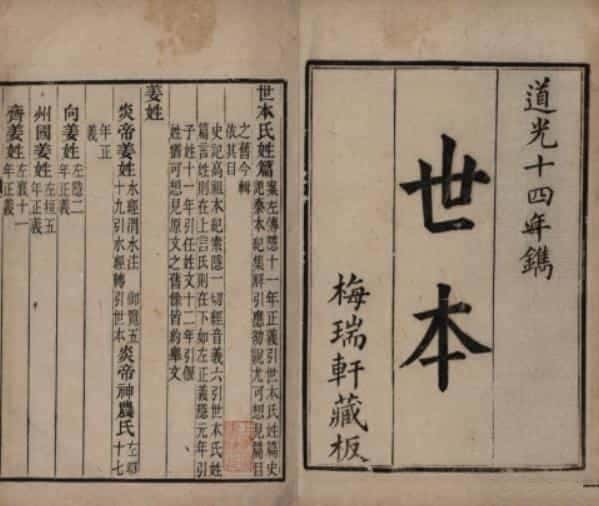 道光十四年鐫
世本
梅瑞軒藏板
世本氏姓篇
案左傳隱十一年正義引世本氏姓篇史
秦本紀集解引應劭說尤可想見篇目
之舊今輯
依其目
史記高祖本紀索隱一切經音義六引世本氏姓
篇言姓則在上言氏則在下如左正義隱元年引
子姓十一年引任姓文十二年引偃
姓猶可想見原文之舊餘皆約舉文
姜姓
炎帝姜姓
水經渭水注 御覽五
十九引水經轉引世本
炎帝神農氏
左昭
十七
年正
義
向姜姓
左隱二
年正義
州國姜姓
左桓五
年正義
齊姜姓
左襄十一
年正義